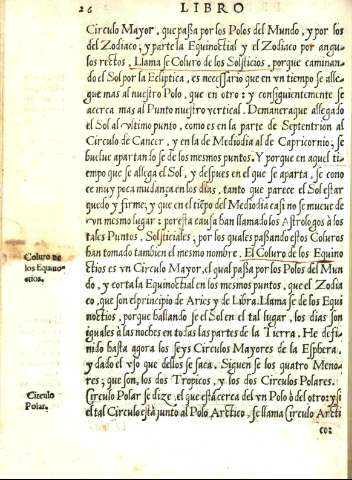 26 LIBRO
Circulo Mayor, que paßa por los Polos del Mundo, y por los
del Zodiaco, y parte la Equinoctial y el Zodiaco por angu
los rectos, Llama se Coluro de los Solsticios, porque caminan-
do el Sol por la Ecliptica, es necessario que en vn tiempo se alle-
gue mas al nuestro Polo, que en otro: y consiguientemente se
acerca mas al Punto nuestro vertical. De manera que allegado
el Sol al vltimo punto, como es en la parte de Septentrion al
Circulo de Cancer, y en la de Mediodia al de Capricornio; se
buelue apartando se de los mesmos puntos. Y porque en aquel ti-
empo que se allega el Sol, y despues en el que se aparta, se cono
ce muy poca mudança en los dias, tanto que parece el Sol estar
quedo y firme; y que en el tiẽpo del Mediodia casi no se mueue de
vn mesmo lugar: por esta causa han llamado los Astrologos à los
tales Puntos, Solsticiales; por los quales paßando estos Coluros
han tomado tambien el mesmo nombre. El Coluro de los Equino-
Coluro de
los Equino-
ctios.
ctios es vn Circulo Mayor, el qual paßa por los Polos del Mun
do, y corta la Equinoctial en los mesmos puntos, que el Zodia
co, que son el principio de Aries y de Libra. Llama se de los Equi
noctios, porque hallando se el Sol en el tal lugar, los dias son
iguales à las noches en todas las partes de la Tierra. He defi-
nido hasta agora los seys Circulos Mayores de la Esphera,
y dado el vso que dellos se saca. Siguen se los quatro Meno-
res; que son, los dos Tropicos, y los dos Circulos Polares.
Circulo
Polar.
Circulo Polar se dize, el que està cerca del vn Polo ò del otro: y si
el tal Circulo està junto al Polo Arctico, se llama Circulo Arcti
co: